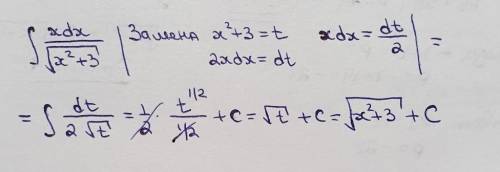 ∫ xdx/√(x²+3) | Замена x²+3=t xdx=dt/2 | =
2xdx=dt
= ∫ dt/(2√t) = 1/2 · t^(1/2)/(1/2) + C = √t + C = √(x²+3) + C